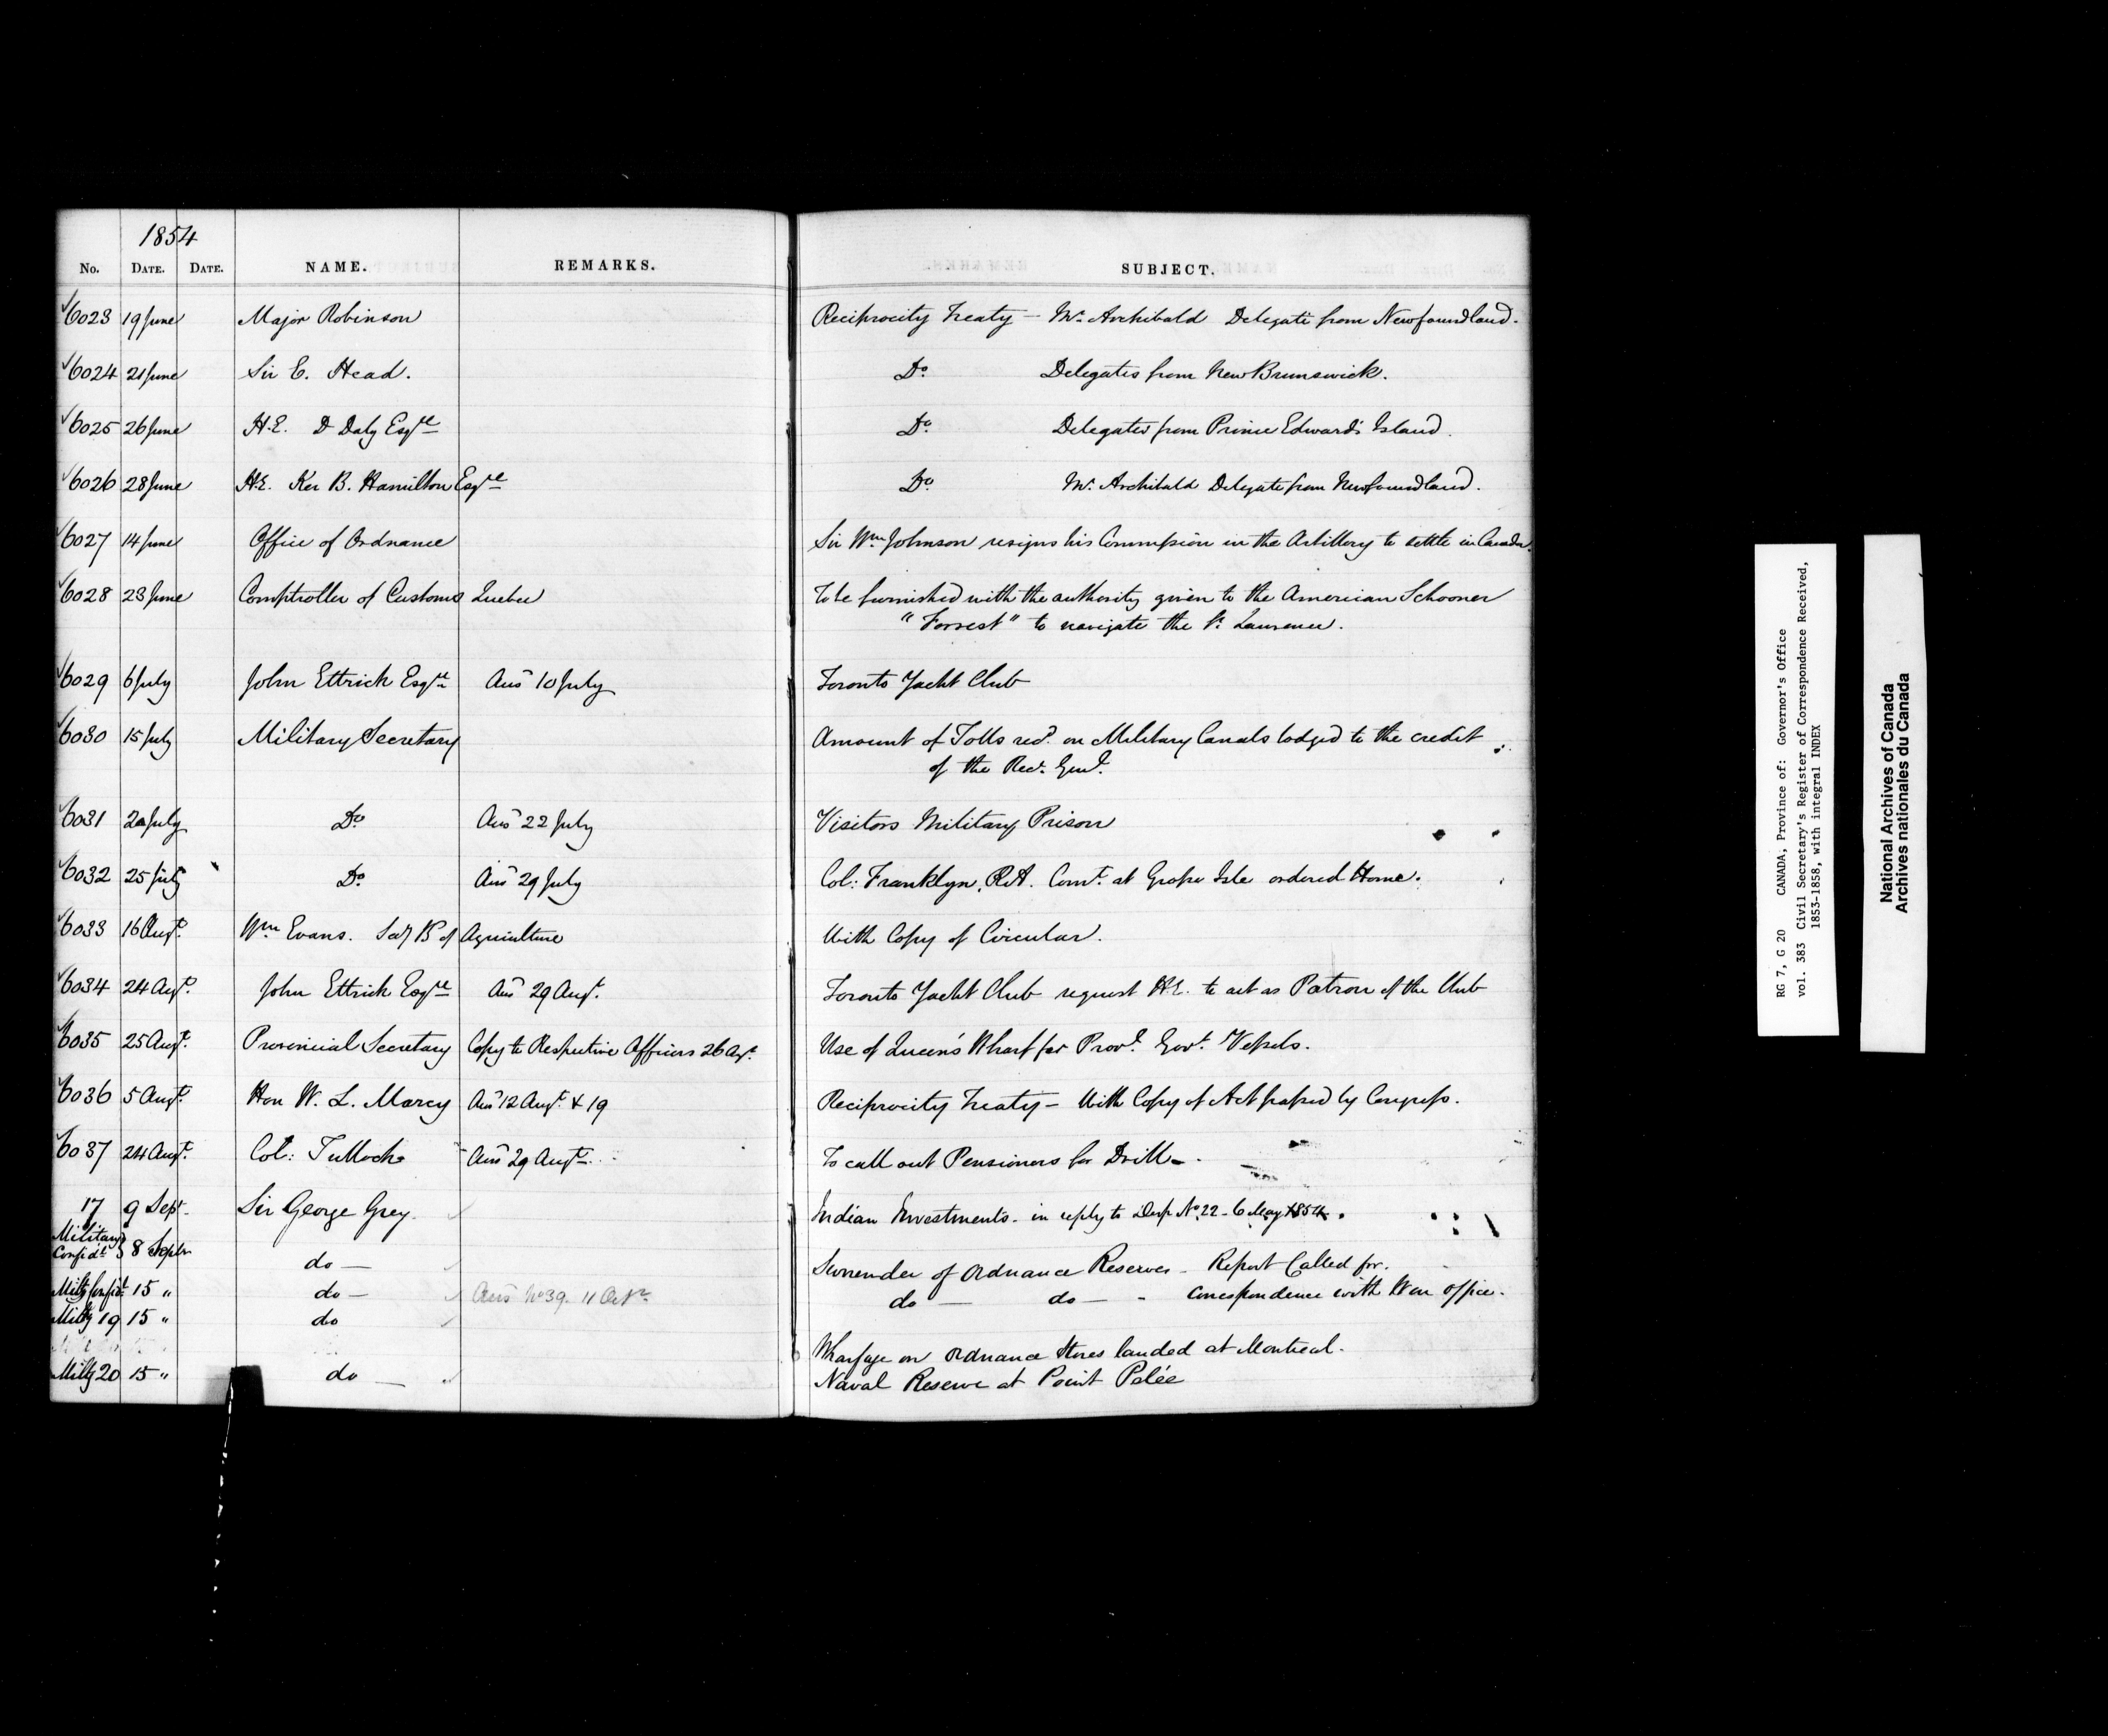 1854
No. DATE. DATE. NAME. REMARKS. SUBJECT.
6023 19 June Major Robinson Reciprocity Treaty — Mr. Archibald Delegate from Newfoundland.
6024 21 June Sir E. Head. Do. Delegates from New Brunswick.
6025 26 June H.E. D Daly Esqre Do. Delegates from Prince Edward's Island.
6026 28 June H.E. Ker B. Hamilton Esqre Do. Mr. Archibald Delegate from Newfoundland.
6027 14 June Office of Ordnance Sir Wm Johnson resigns his Commission in the Artillery to settle in Canada.
6028 23 June Comptroller of Customs Quebec To be furnished with the authority given to the American Schooner
"Forrest" to navigate the St. Lawrence.
6029 6 July John Ettrick Esqre Ansd 10 July Toronto Yacht Club
6030 15 July Military Secretary Amount of Tolls recd. on Military Canals lodged to the credit
of the Recr. Genl.
6031 20 July Do. Ansd 22 July Visitors Military Prison
6032 25 July Do. Ansd 29 July Col: Franklyn, R.A. Comt. at Grosse Isle ordered Home.
6033 16 Augt. Wm Evans. Secy B of Agriculture With Copy of Circular.
6034 24 Augt. John Ettrick Esqre Ansd 29 Augt. Toronto Yacht Club request H.E. to act as Patron of the Club
6035 25 Augt. Provincial Secretary Copy to Respective Officers 26 Agt. Use of Queen's Wharf for Provl. Govt. Vessels.
6036 5 Augt. Hon W. L. Marcy Ansd 12 Augt. & 19 Reciprocity Treaty — With Copy of Act passed by Congress.
6037 24 Augt. Col: Tulloch Ansd 29 Augt. To call out Pensioners for Drill —.
17 9 Sept. Sir George Grey. Indian Investments — in reply to Desp No. 22 — 6 May 1854.
Military
Confidt. 8 Septr do — Surrender of Ordnance Reserves — Report Called for.
Milty Confidt. 15 " do — Ansd No 39. 11 Octr. do — do — - Correspondence with War office.
Milty 19 15 " do Wharfage on Ordnance Stores landed at Montreal.
Milty 20 15 " do — Naval Reserve at Point Pelée
RG 7, G 20 CANADA, Province of: Governor's Office
vol. 383 Civil Secretary's Register of Correspondence Received,
1853-1858, with integral INDEX
National Archives of Canada
Archives nationales du Canada